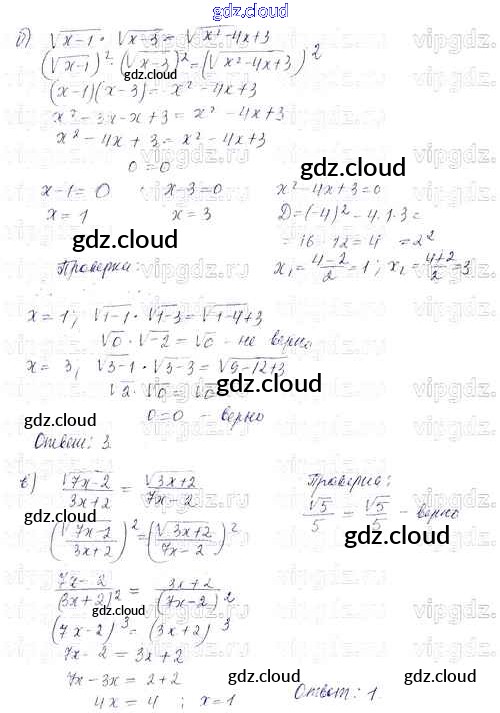 gdz.cloud
б) √x-1 · √x-3 = √x²-4x+3
(√x-1)² · (√x-3)² = (√x²-4x+3)²
gdz.cloud
(x-1)(x-3) = x²-4x+3
x²-3x-x+3 = x²-4x+3
x²-4x+3 = x²-4x+3
0=0
gdz.cloud
x-1=0 x-3=0 x²-4x+3=0
x=1 x=3 D=(-4)²-4·1·3=
gdz.cloud
=16-12=4 =2²
Проверка: x₁=(4-2)/2=1; x₂=(4+2)/2=3
x=1; √1-1 · √1-3 = √1-4+3
√0 · √-2 = √0 - не верно
x=3, √3-1 · √3-3 = √9-12+3
gdz.cloud
√2 · √0 = √0
0=0 - верно
gdz.cloud
Ответ: 3
в) √7x-2/3x+2 = √3x+2/7x-2 Проверка:
√5/5 = √5/5 - верно
(√7x-2/3x+2)² = (√3x+2/7x-2)²
gdz.cloud
7x-2/(3x+2)² = 3x+2/(7x-2)²
gdz.cloud
(7x-2)³ = (3x+2)³
7x-2 = 3x+2
gdz.cloud
gdz.cloud
7x-3x = 2+2
4x = 4 ; x=1 Ответ: 1